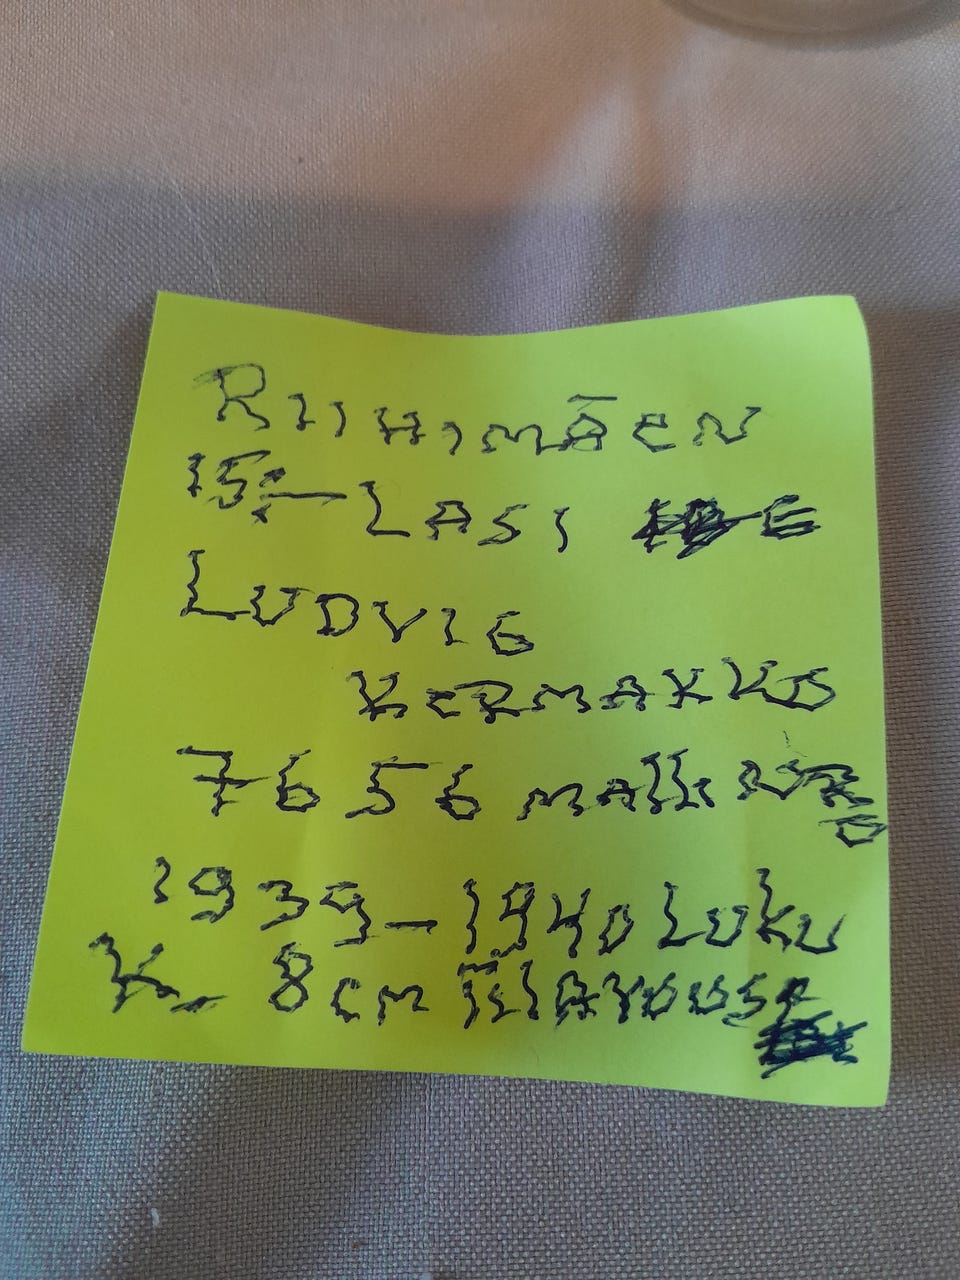 RIIHIMÄEN
15:- LASI
LUDVIG
KERMAKKO
7656 malli NRO
1939-1940 Luku
K- 8cm TILAVUUS